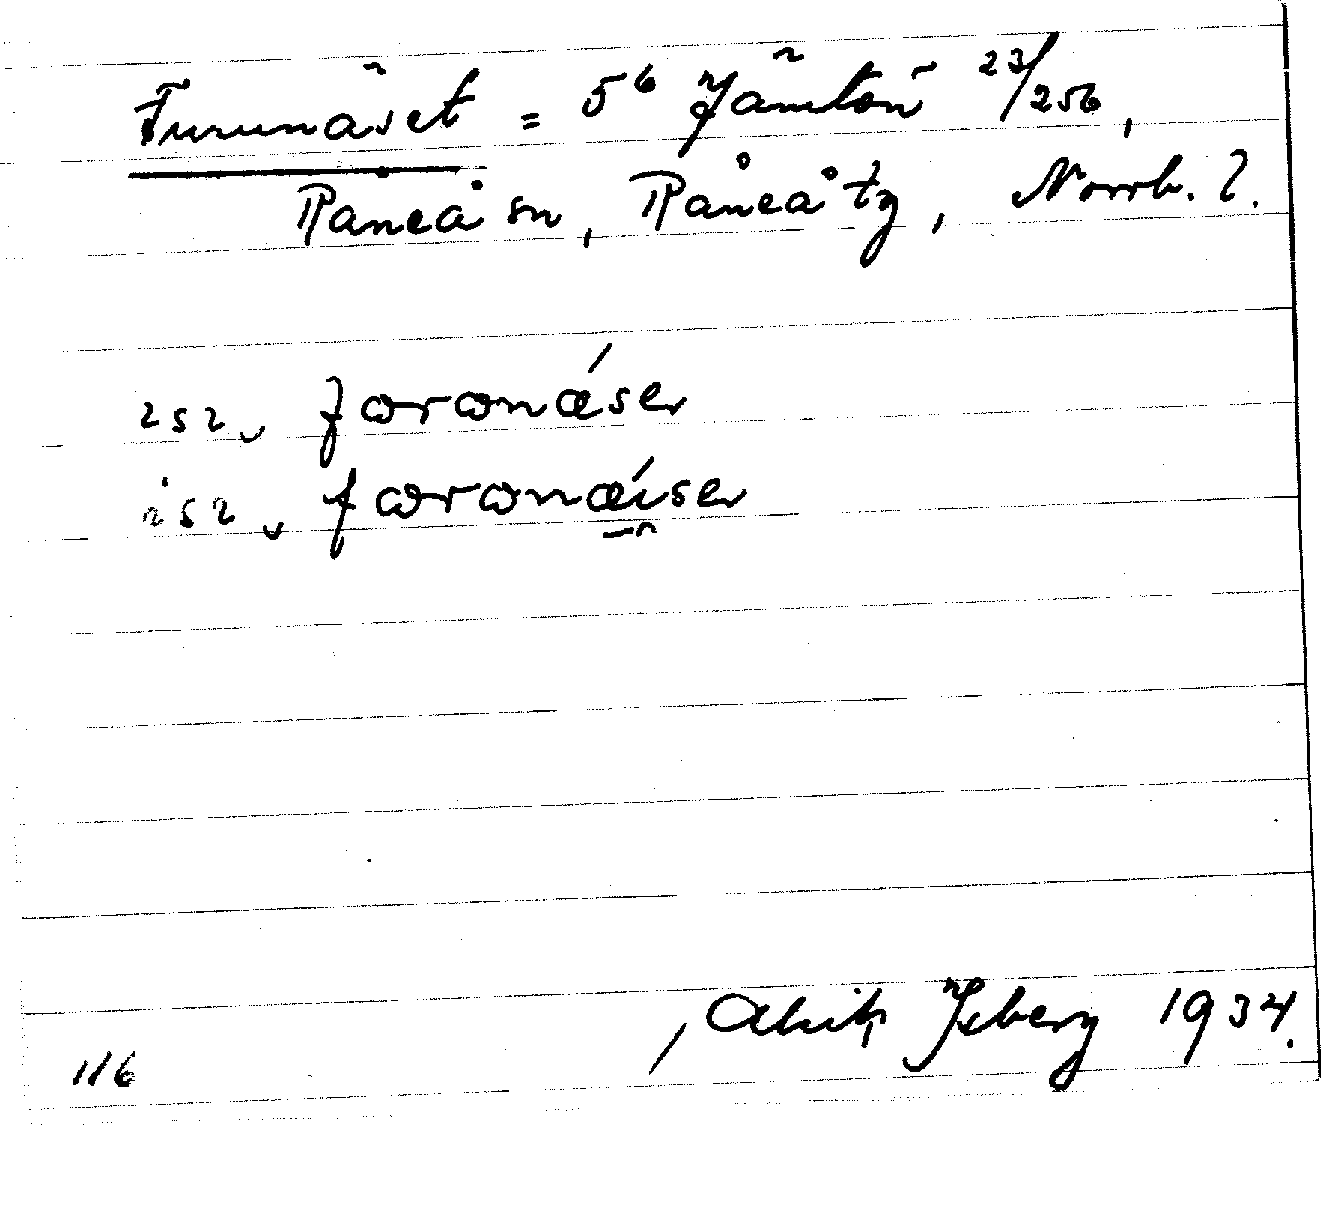 Furunäset = 5⁶ Jämtön 23/256,
Råneå sn, Råneå tg, Norrb. l.
252, fωrωnǽser
252, fωrωnǽiser
Alrik Isberg 1934.
1/6